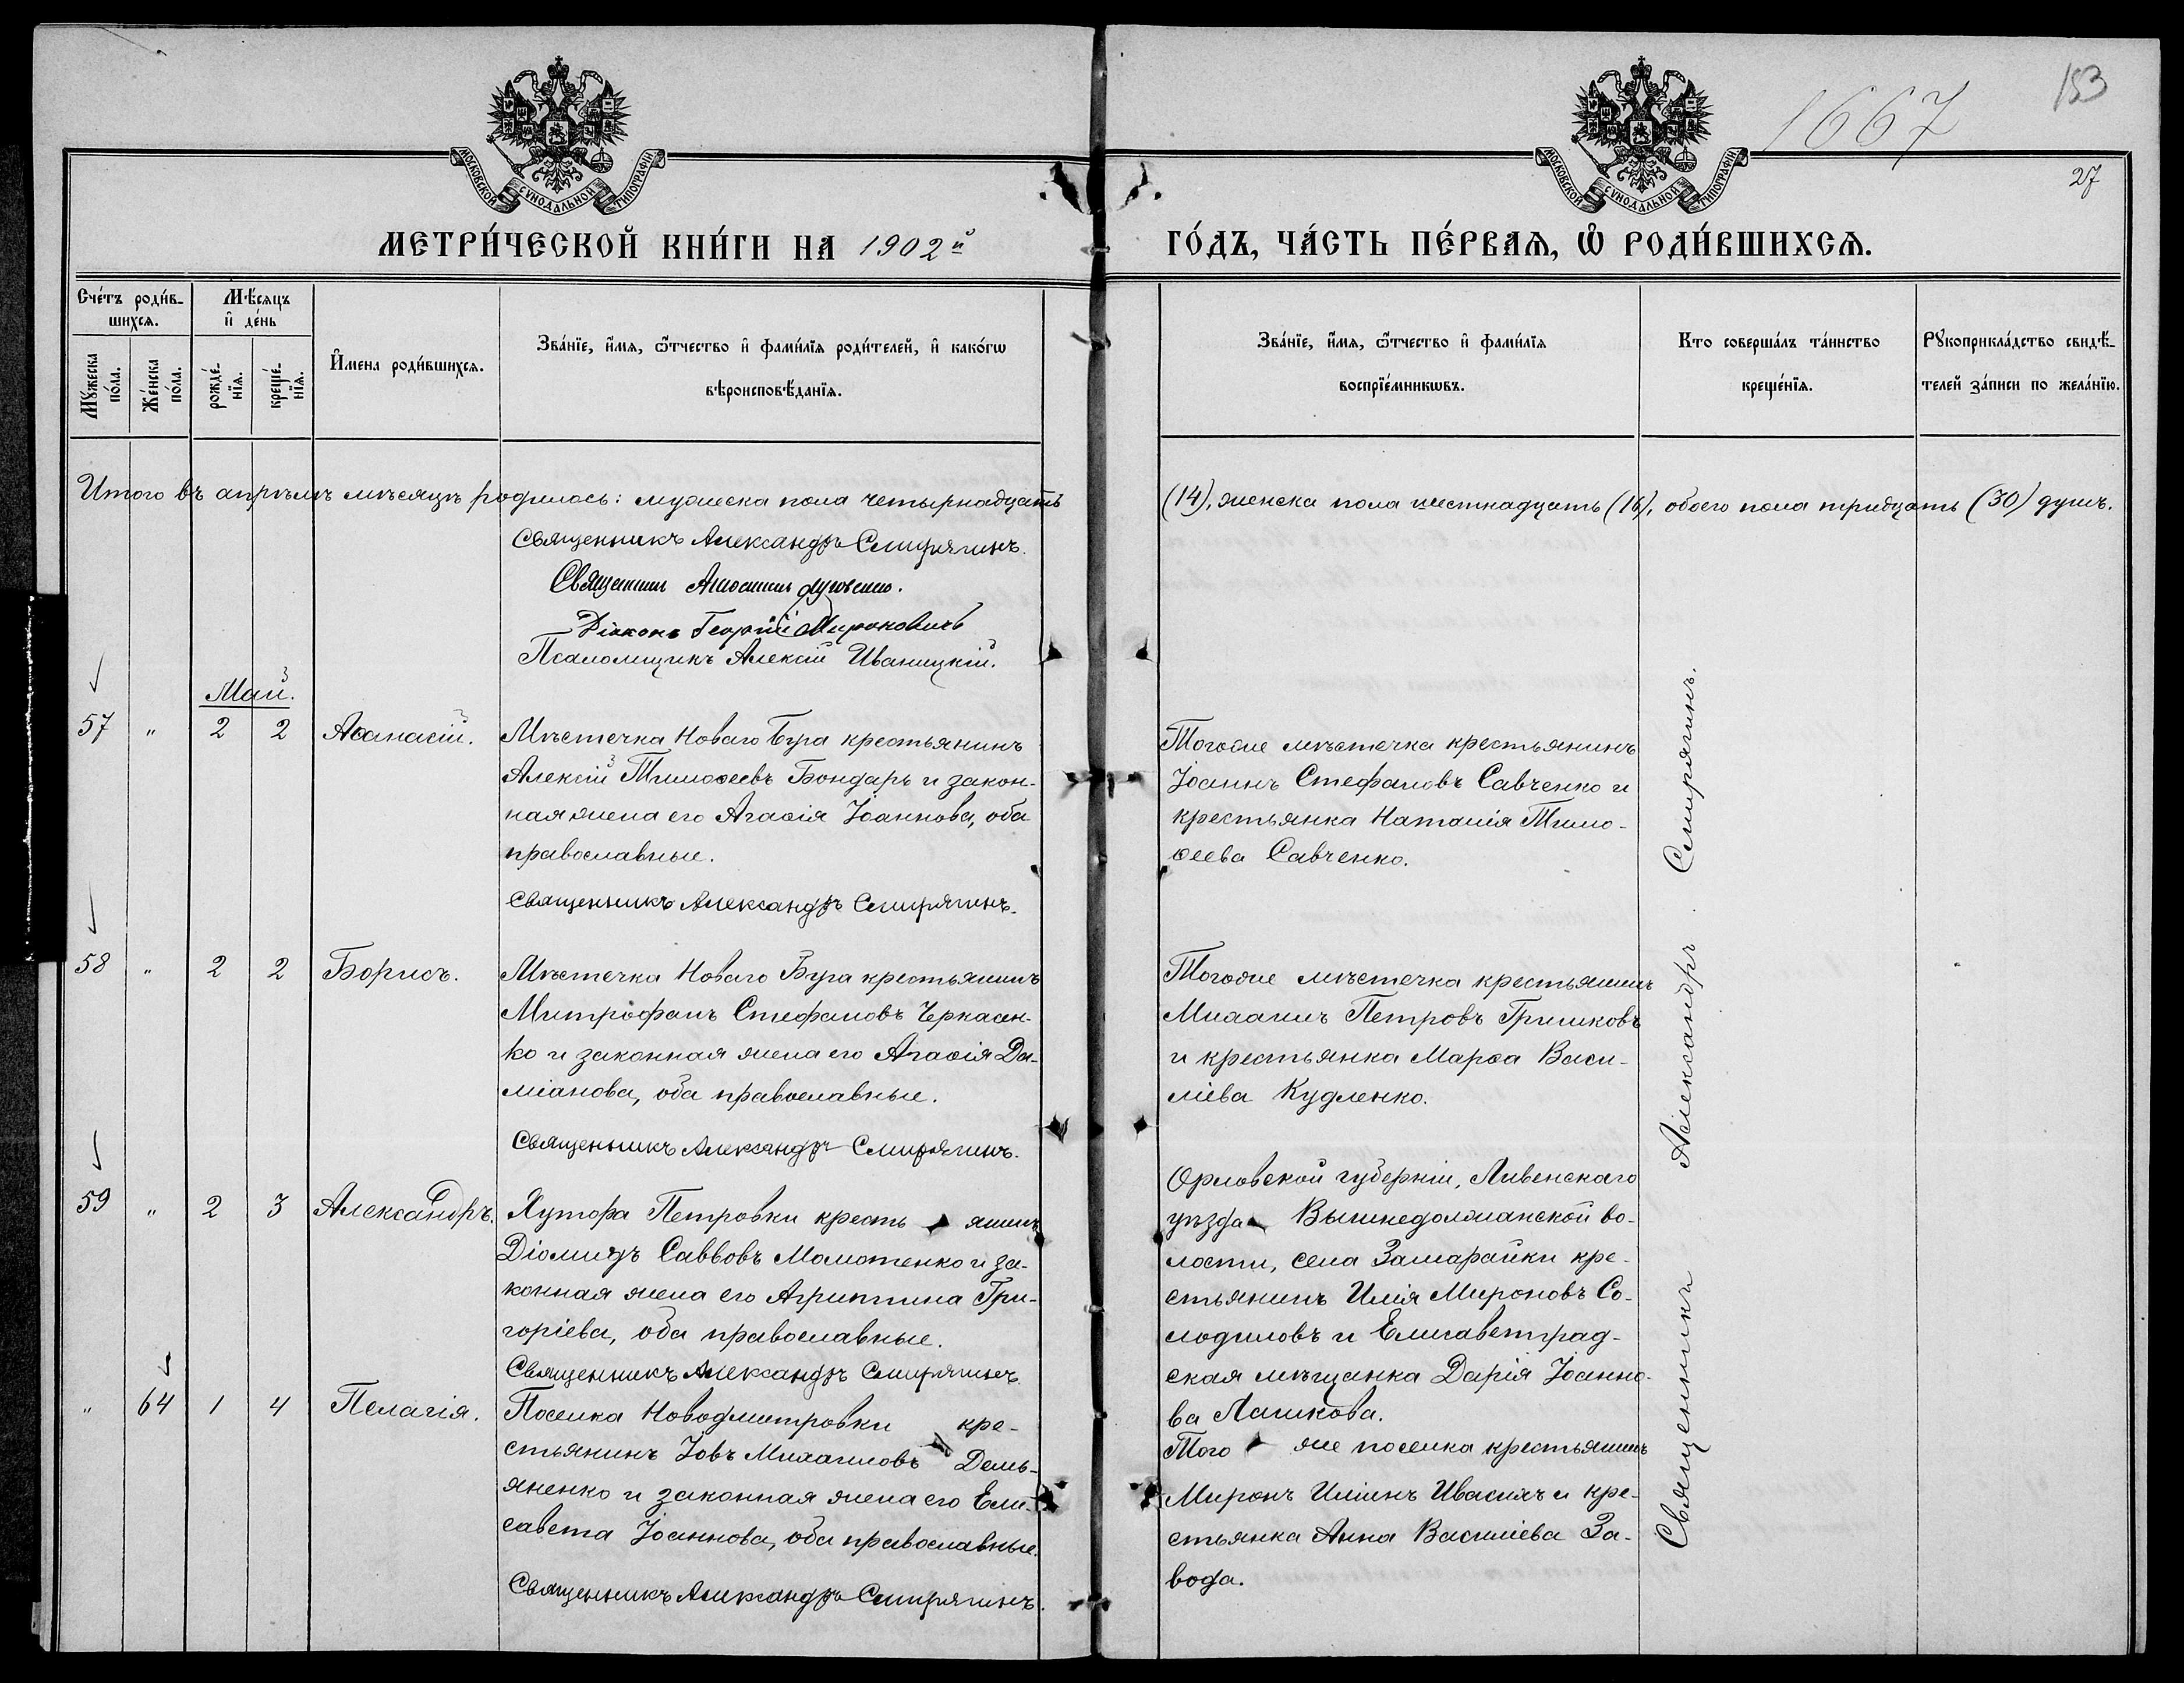 1667
153
27
МОСКОВСКОЙ СѴНОДАЛЬНОЙ ТИПОГРАФІИ
МОСКОВСКОЙ СѴНОДАЛЬНОЙ ТИПОГРАФІИ
МЕТРИ́ЧЕСКОЙ КНИ́ГИ НА 1902й
ГО́ДЪ, ЧА́СТЬ ПЕ́РВАѦ, Ѡ҆ РОДИ́ВШИХСѦ.
Сче́тъ роди́в-
шихсѧ.
Мѣ́сяцъ
и҆ де́нь
Мꙋ́жеска
по́ла.
Же́нска
по́ла.
рожде́-
нїѧ.
креще́-
нїѧ.
И҆мена роди́вшихсѧ.
Зва́нїе, и҆́мѧ, ѻ҆́тчество и҆ фами́лїѧ роди́телей, и҆ како́гѡ
вѣроисповѣ́данїѧ.
Зва́нїе, и҆́мѧ, ѻ҆́тчество и҆ фами́лїѧ
воспрїе́мникѡвъ.
Кто соверша́лъ та́инство
креще́нїѧ.
Рꙋкоприкла́дство свидѣ́-
телей за́писи по жела́нїю.
Итого въ апрѣлѣ мѣсяцѣ родилось: мужеска пола четырнадцать
(14), женска пола шестнадцать (16), обоего пола тридцать (30) душъ.
Священникъ Александръ Смирягинъ.
Священникъ
Діаконъ Георгій Мироновичъ
Псаломщикъ Алексій Иваницкій.
Май.
57 " 2 2 Аѳанасій.
Мѣстечка Новаго Буга крестьянинъ
Алексій Тимоѳеевъ Бондарь и закон-
ная жена его Агаѳія Іоаннова, оба
православные.
Священникъ Александръ Смирягинъ.
Тогоже мѣстечка крестьянинъ
Іоаннъ Стефановъ Савченко и
крестьянка Наталія Тимо-
ѳеева Савченко.
58 " 2 2 Борисъ.
Мѣстечка Новаго Буга крестьянинъ
Митрофанъ Стефановъ Черкасен-
ко и законная жена его Агаѳія Да-
міанова, оба православные.
Священникъ Александръ Смирягинъ.
Тогоже мѣстечка крестьянинъ
Михаилъ Петровъ Гришковъ
и крестьянка Марѳа Васи-
ліева Кудленко.
59 " 2 3 Александръ.
Хутора Петровки кресть янинъ
Діомидъ Саввовъ Молотенко и за-
конная жена его Агриппина Гри-
горіева, оба православные.
Священникъ Александръ Смирягинъ.
Орловской губерніи, Ливенскаго
уѣзда Вышнедолжанской во-
лости, села Замарайки кре-
стьянинъ Илія Мироновъ Со-
лодиловъ и Елисаветград-
ская мѣщанка Дарія Іоанно-
ва Лашкова.
" 64 1 4 Пелагія.
Поселка Новодмитровки кре-
стьянинъ Іовъ Михаиловъ Демь-
яненко и законная жена его Ели-
савета Іоаннова, оба православные.
Священникъ Александръ Смирягинъ.
Того же поселка крестьянинъ
Миронъ Иліинъ Ивасихъ и кре-
стьянка Анна Василіева За-
вода.
Священникъ Александръ Смирягинъ.